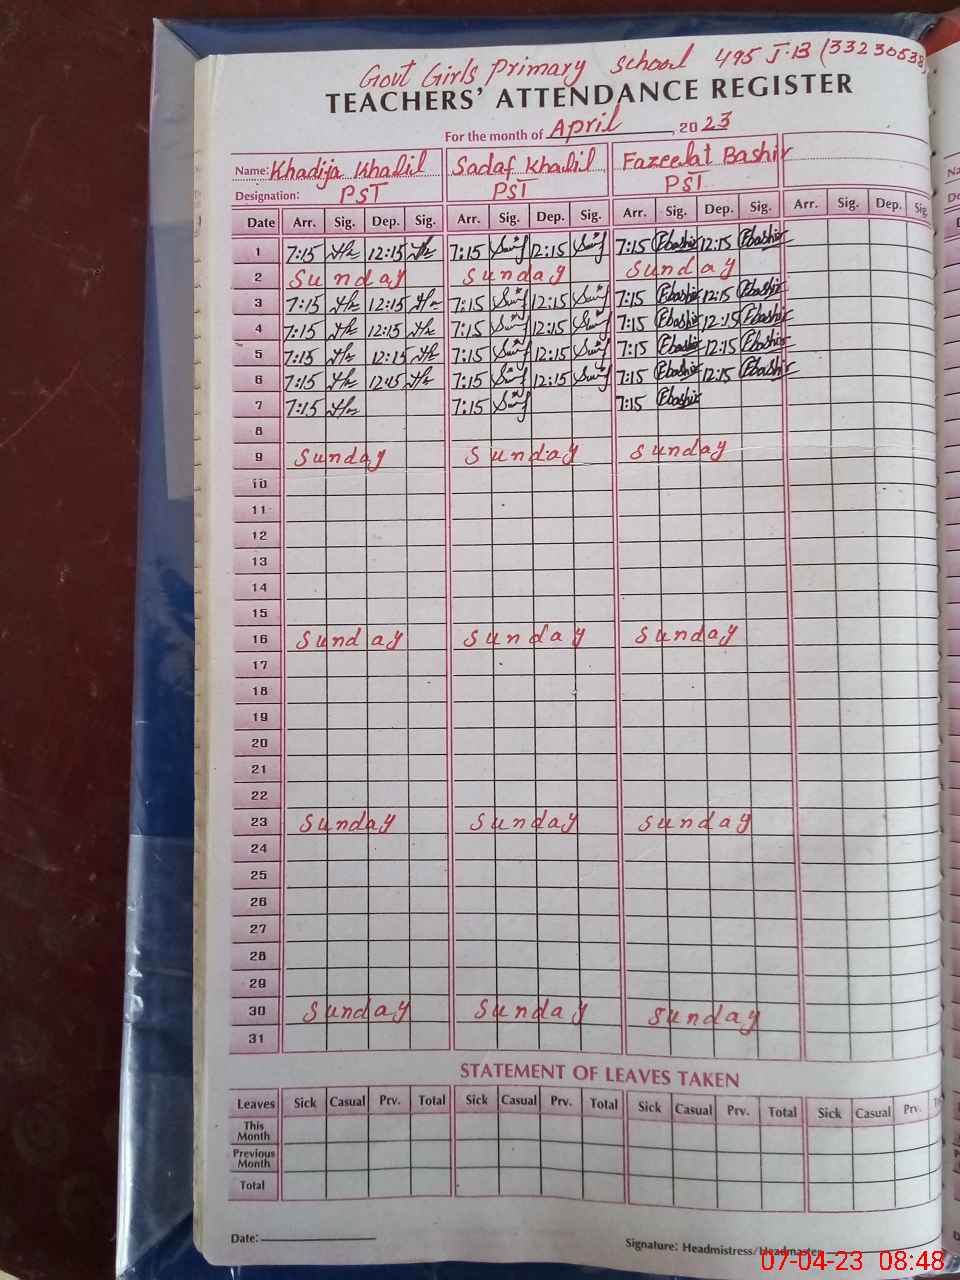 Govt Girls Primary school 495 J.B (33230538)
TEACHERS' ATTENDANCE REGISTER
For the month of April, 2023
Name: Khadija Khalil Sadaf Khalil Fazeelat Bashir
Designation: PST PST PST
Date Arr. Sig. Dep. Sig. Arr. Sig. Dep. Sig. Arr. Sig. Dep. Sig. Arr. Sig. Dep. Sig.
1 7:15 12:15 7:15 12:15 7:15 Fbashir 12:15 Fbashir
2 Sunday Sunday Sunday
3 7:15 12:15 7:15 12:15 7:15 Fbashir 12:15 Fbashir
4 7:15 12:15 7:15 12:15 7:15 Fbashir 12:15 Fbashir
5 7:15 12:15 7:15 12:15 7:15 Fbashir 12:15 Fbashir
6 7:15 12:15 7:15 12:15 7:15 Fbashir 12:15 Fbashir
7 7:15 7:15 7:15 Fbashir
8
9 Sunday Sunday Sunday
10
11
12
13
14
15
16 Sunday Sunday Sunday
17
18
19
20
21
22
23 Sunday Sunday Sunday
24
25
26
27
28
29
30 Sunday Sunday Sunday
31
STATEMENT OF LEAVES TAKEN
Leaves Sick Casual Prv. Total Sick Casual Prv. Total Sick Casual Prv. Total Sick Casual Prv.
This Month
Previous Month
Total
Date:
Signature: Headmistress/Headmaster
07-04-23 08:48